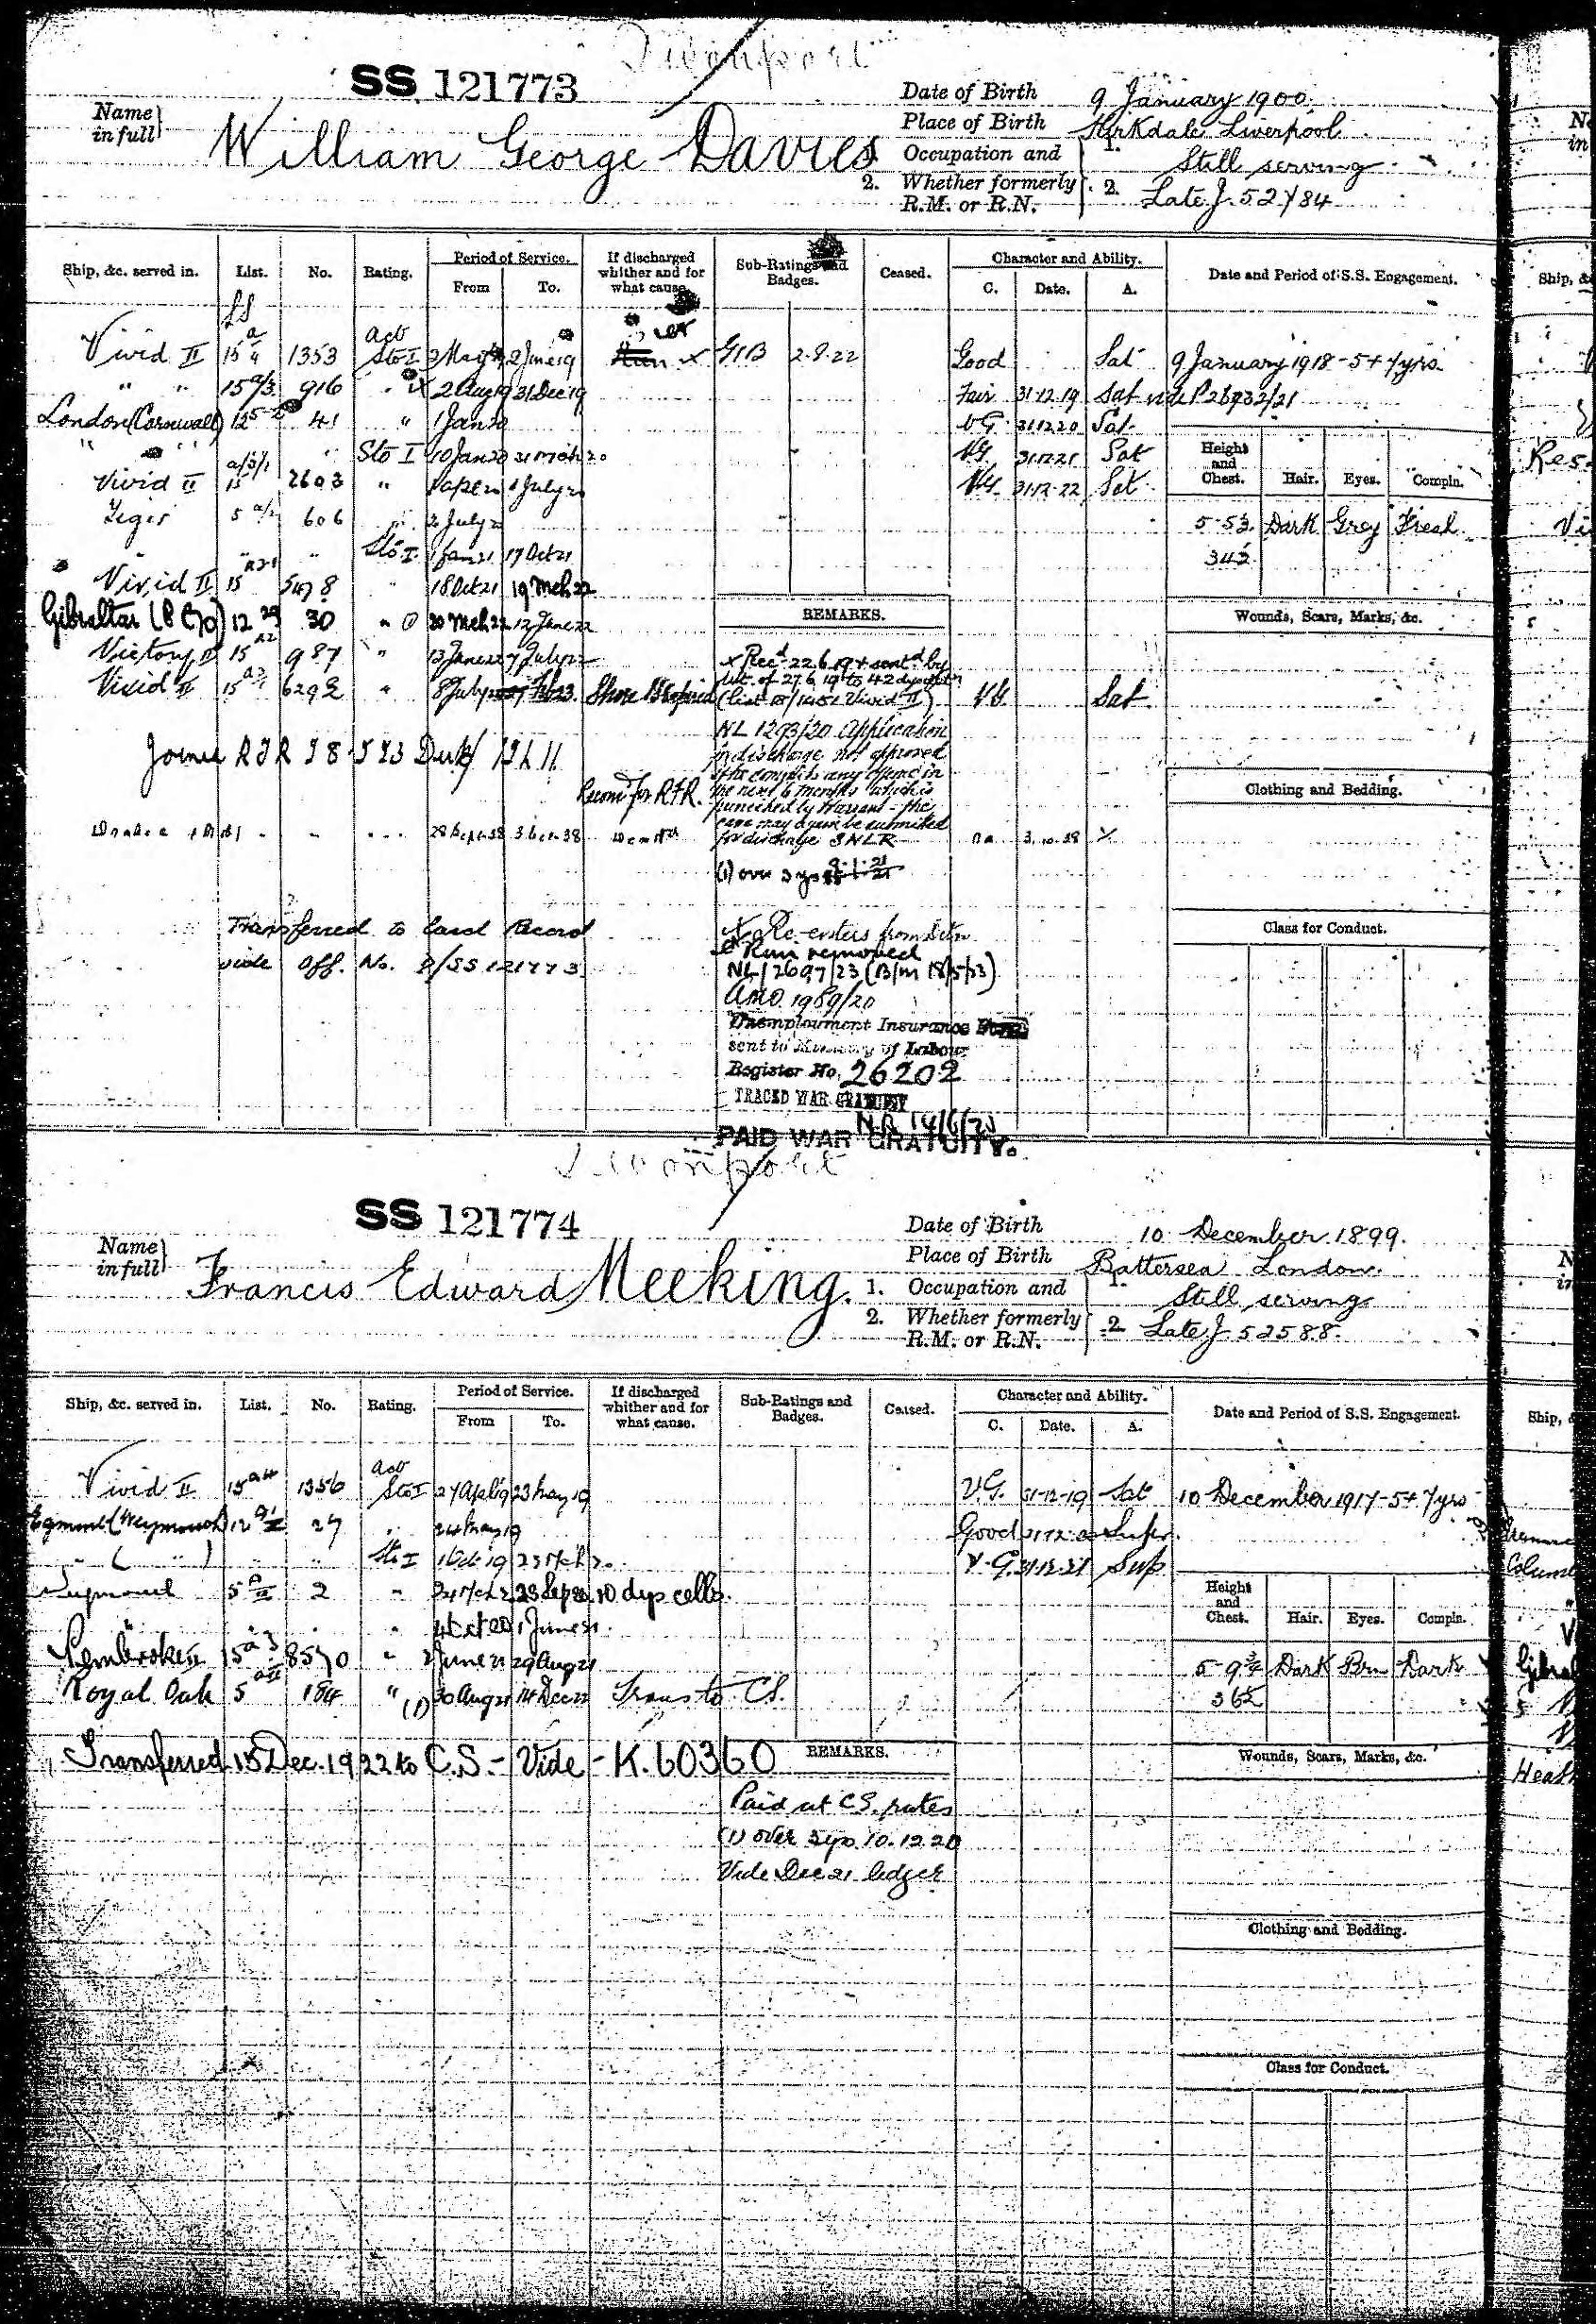 Devonport
SS 121773
Name in full
William George Davies
Date of Birth 9 January 1900
Place of Birth Kirkdale Liverpool
1. Occupation and Still serving
2. Whether formerly R.M. or R.N. 2. Late J. 52784
Ship, &c. served in. List. No. Rating. Period of Service. From To. If discharged whither and for what cause. Sub-Ratings and Badges. Ceased. Character and Ability. C. Date. A. Date and Period of S.S. Engagement.
Vivid II 15 1353 Act Sto I 2 June 19 Run x G1B 2.8.22 Good Sat 9 January 1918 - 5 + 7 yrs
" " 15 916 " x 2 Aug 19 31 Dec 19 Fair 31.12.19 Sat
London (Cornwall) 12 41 " 1 Jan 20 VG 31.12.20 Sat
" " Sto I 10 Jan 20 31 Mch 20 VG 31.12.21 Sat
Vivid II 15 2603 " 1 July 20 VG 31.12.22 Sat
606 " 2 July 20
" " Sto I 1 Jan 21 17 Oct 21
Vivid II 15 5478 " 18 Oct 21 19 Mch 22
Gibraltar 12 30 " 20 Mch 22 12 June 22
Victory II 15 987 " 13 June 22 7 July 22
Vivid II 15 6292 " 8 July 22 Feb 23 Shore VG Sat
Height and Chest. Hair. Eyes. Compln.
5-5½ Dark Grey Fresh
34½
REMARKS.
x Recd 22.6.19 & sentd by
Wt. of 27.6.19 to 42 dys detn
(list 15/1451 Vivid II)
NL 1293/20 Application
for discharge not approved
if he commits any offence in
the next 6 months which is
punished by Warrant - the
case may again be submitted
for discharge SNLR
Recomd for R.F.R.
28 Sept 38 3 Oct 38 3.10.38
(1) over 3 yrs 9.1.21
Transferred to Card Record
vide Off. No. D/SS 121773
x Re-enters from Detn
Run removed
NL/2697/23 (B/m 18/5/23)
AMO 1989/20
Unemployment Insurance
sent to Ministry of Labour
Register No. 26202
TRACED WAR GRATUITY
PAID WAR GRATUITY.
Wounds, Scars, Marks, &c.
Clothing and Bedding.
Class for Conduct.
Devonport
SS 121774
Name in full
Francis Edward Meeking.
Date of Birth 10 December 1899.
Place of Birth Battersea London.
1. Occupation and 1. Still serving
2. Whether formerly R.M. or R.N. 2 Late J 52588.
Ship, &c. served in. List. No. Rating. Period of Service. From To. If discharged whither and for what cause. Sub-Ratings and Badges. Ceased. Character and Ability. C. Date. A. Date and Period of S.S. Engagement.
Vivid II 15 1356 Act Sto I 27 Apl 19 23 May 19 V.G. 31-12-19 Sat 10 December 1917 - 5 + 7 yrs
Egmont (Weymouth) 12 27 " 24 May 19 Good 31.12.20 Super.
" ( " ) " " Sto I 1 Oct 19 23 Mch 20 V.G. 31.12.21 Sup
Weymouth 5 2 " 24 Mch 20 23 Sep 20 10 dys cells.
" " " " 4 Oct 20 1 June 21
Pembroke II 15 8570 " 2 June 21 29 Aug 21
Royal Oak 5 184 " (1) 30 Aug 21 14 Dec 22 Trans to C.S.
Transferred 15 Dec. 1922 to C.S. - Vide - K.60360
Height and Chest. Hair. Eyes. Compln.
5-9¾ Dark Brn Dark
36½
REMARKS.
Paid at C.S. rates
(1) over 3 yrs 10.12.20
Vide Dec 21 ledger
Wounds, Scars, Marks, &c.
Clothing and Bedding.
Class for Conduct.